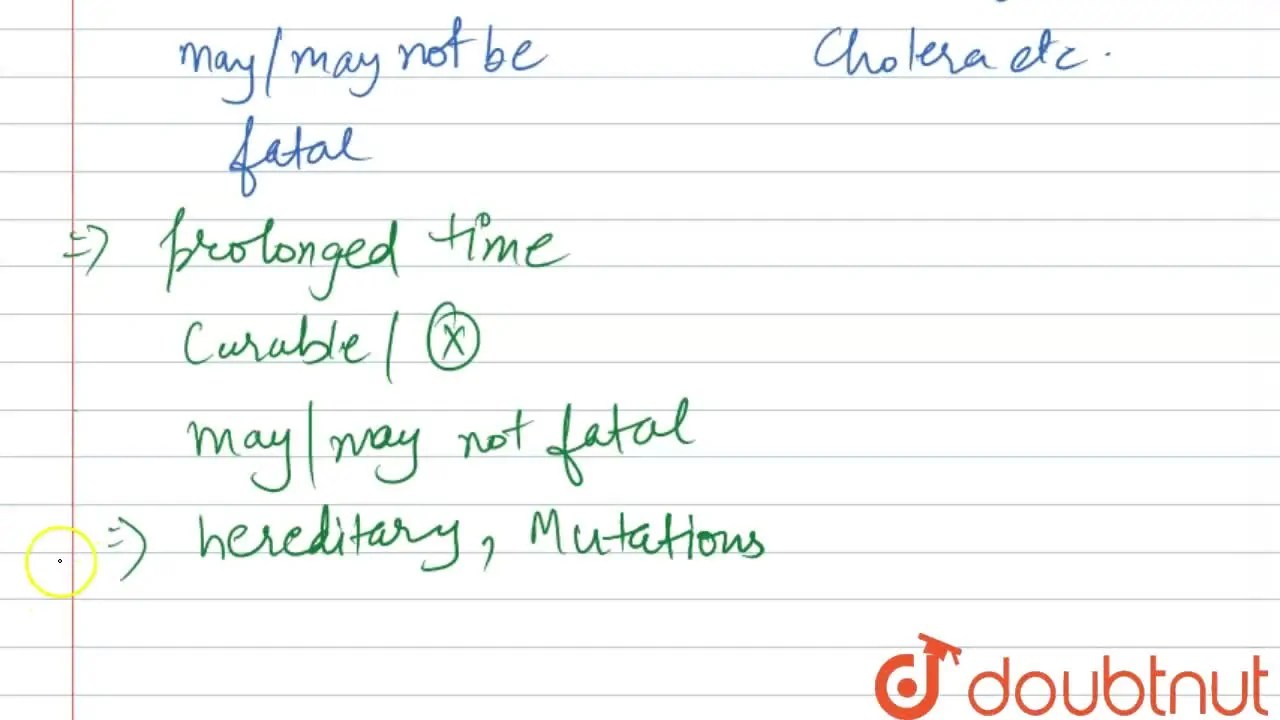 may/may not be
Cholera etc.
fatal
=> prolonged time
Curable/ X
may/may not fatal
=> hereditary, Mutations
doubtnut